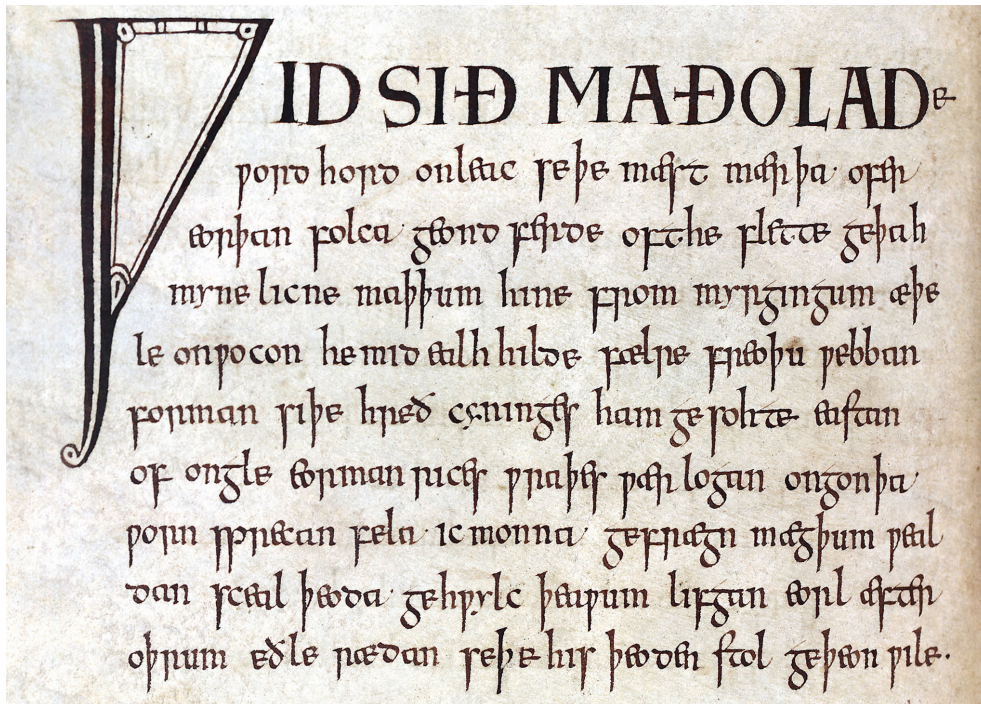 ǷID SIÐ MAÐOLADe
ƿord hord onleac seþe mæst mærþa ofer
eorþan folca geond ferde oft he flette geþah
myne licne maþþum hine from myrgingum æþe
le onƿocon he mid ealh hilde fælre freoþu ƿebban
forman siþe hreð cyninges ham ge sohte eastan
of ongle eorman rices ƿraþes ƿær logan ongon þa
ƿorn sprecan fela ic monna gefrægn mægþum ƿeal
dan sceal þeoda gehƿylc þeaƿum lifgan eorl æfter
oþrum eðle rædan seþe his þeoden stol geþeon ƿile·